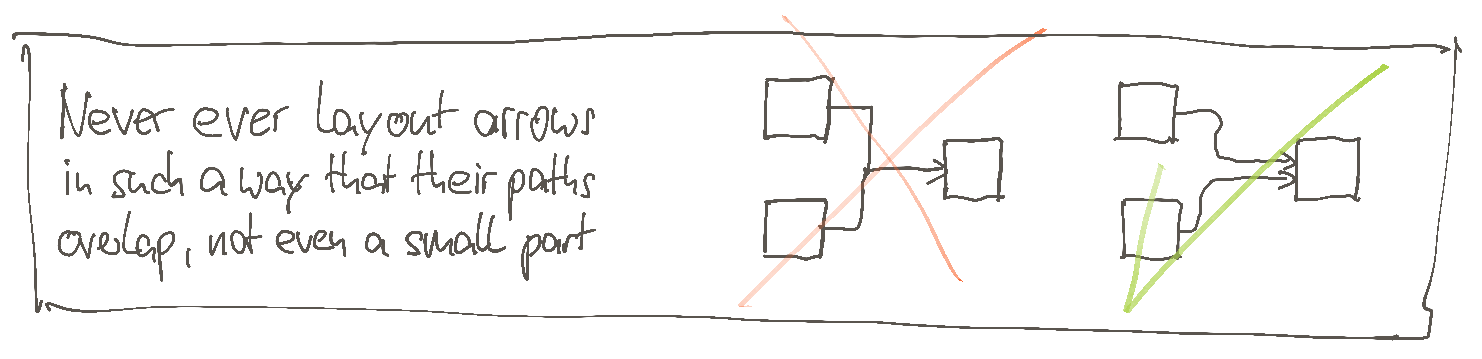 Never ever layout arrows
in such a way that their paths
overlap, not even a small part